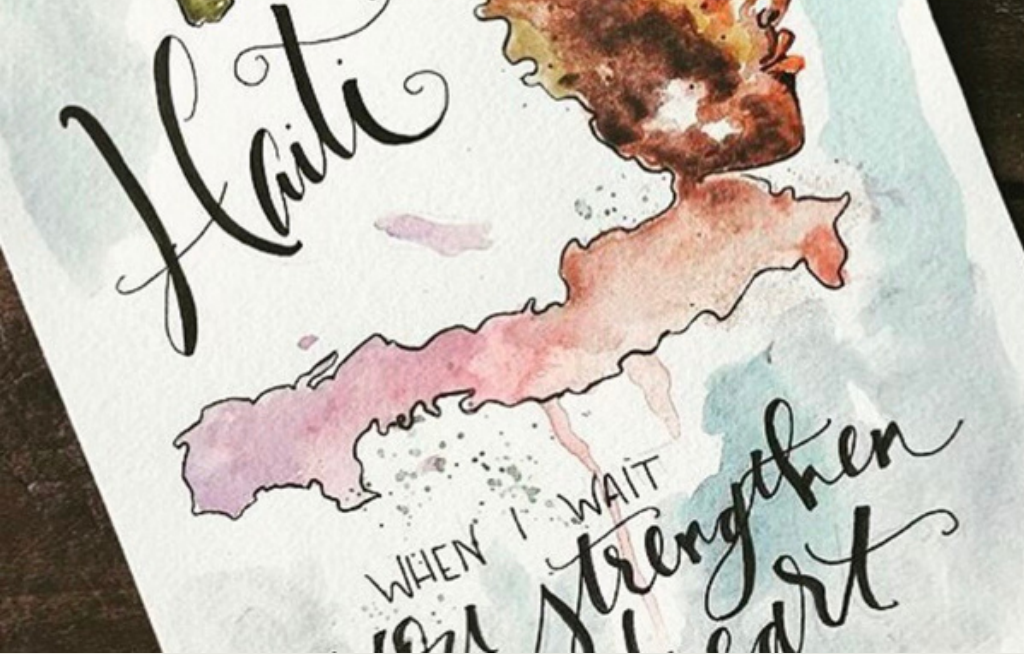 Haiti
WHEN I WAIT
you strengthen
heart